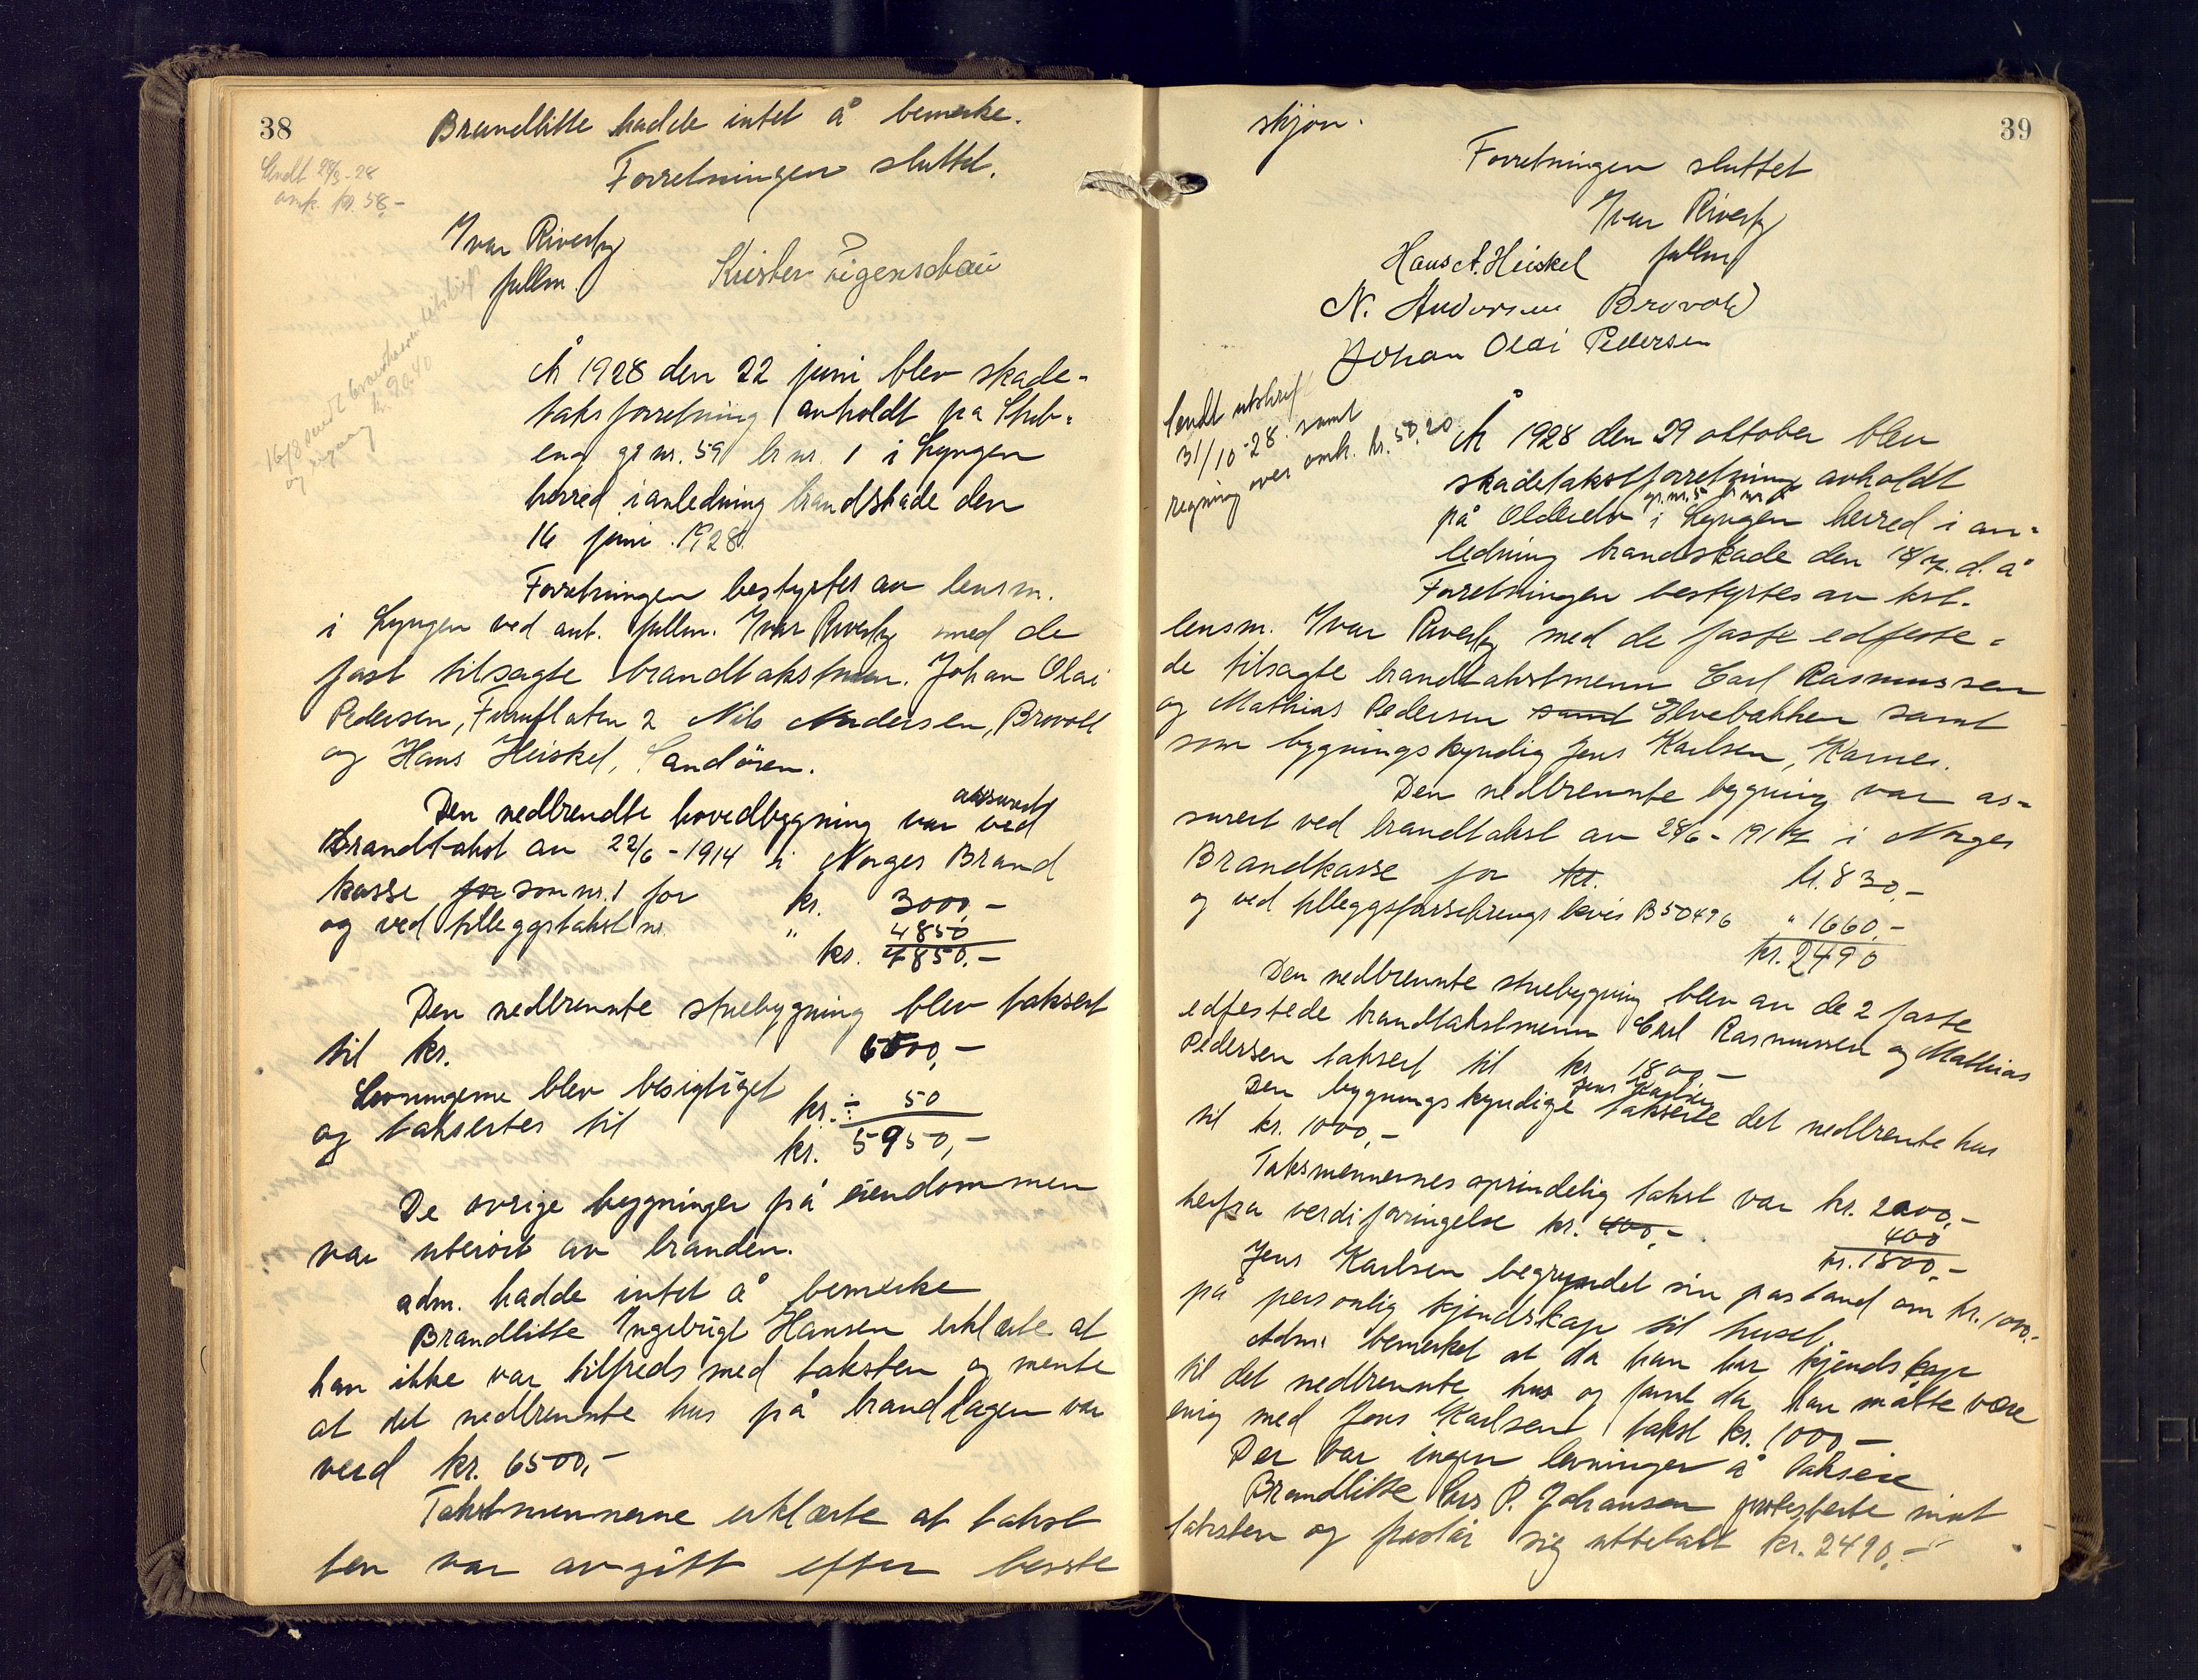 38
Brandlitte hadde intet å bemerke.
Forretningen sluttet.
Sendt 29/3-28
omk. kr. 58,-
Ivar Riverty
fullm.
Krister Figenschau
16/8 sendt brandkassen utskrift
og regning kr. 90.40
År 1928 den 22 juni blev skade-
taksforretning avholdt på Steb-
eng gr nr. 59 br nr. 1 i Lyngen
herred i anledning brandskade den
16 juni 1928.
Forretningen bestyrtes av lensm.
i Lyngen ved aut. fullm. Ivar Riverty med de
fast tilsagte brandtakstmen. Johan Olai
Pedersen, Furuflaten 2 Nils Andersen, Brovolt
og Hans Heiskel, Sandören.
Den nedbrendte hovedbygning var assurert ved
Brandtakst av 22/6-1914 i Norges Brand
kasse for som nr. 1 for kr. 3000,-
og ved tilleggstakst nr. " 4850
kr. 7850.-
Den nedbrennte stuebygning blev taksert
til kr. 6000,-
Levningerne blev besigtiget
og taksertes til kr. ÷ 50
kr. 5950,-
De øvrige bygninger på eiendommen
var uberört av branden.
adm. hadde intet å bemerke
Brandlitte Ingebrigt Hansen erklærte at
han ikke var tilfreds med taksten og mente
at det nedbrennte hus på branddagen var
verd kr. 6500,-
Takstmennerne erklærte at takst
ten var avgitt efter beste
39
skjön.
Forretningen sluttet
Ivar Riverty
fullm
Hans A. Heiskel
N. Andersen Brovold
Johan Olai Pedersen
Sendt utskrift
31/10-28 samt
regning over omk. kr. 58,20
År 1928 den 29 oktober blev
skadetakstforretning avholdt
på Olderelv gr. nr. 5 br nr 5 i Lyngen herred i an-
ledning brandskade den 18/7. d. å
Forretningen bestyrtes av kst.
lensm. Ivar Riverty med de faste edfeste-
de tilsagte brandtakstmenn Carl Rasmussen
og Mathias Pedersen samt Elvebakken samt
som bygningskyndig Jens Karlsen, Karnes.
Den nedbrennte bygning var as-
surert ved brandtakst av 28/6-1917 i Norges
Brandkasse for kr. kr. 830,-
og ved tilleggsforsikrings bevis B50496 " 1660,-
kr. 2490
Den nedbrennte stuebygning blev av de 2 faste
edfestede brandtakstmenn Carl Rasmussen og Mathias
Pedersen taksert til kr. 1800,-
Den bygningskyndige Jens Karlsen takserte det nedbrente hus
til kr. 1000,-
Taksmennernes oprindelig takst var kr. 2200,-
herfra verdiforringelse kr. 400,- 400
kr. 1800,-
Jens Karlsen begryndet sin pastand om kr. 1000.-
på personlig kjendskap til huset.
Adm. bemerket at da han har kjendskap
til det nedbrennte hus og fant da han måtte være
enig med Jens Karlsens takst kr. 1000,-
Der var ingen levninger å taksere
Brandlitte Lars P. Johansen protesterte mot
taksten og påstår sig utbetalt kr. 2490,-